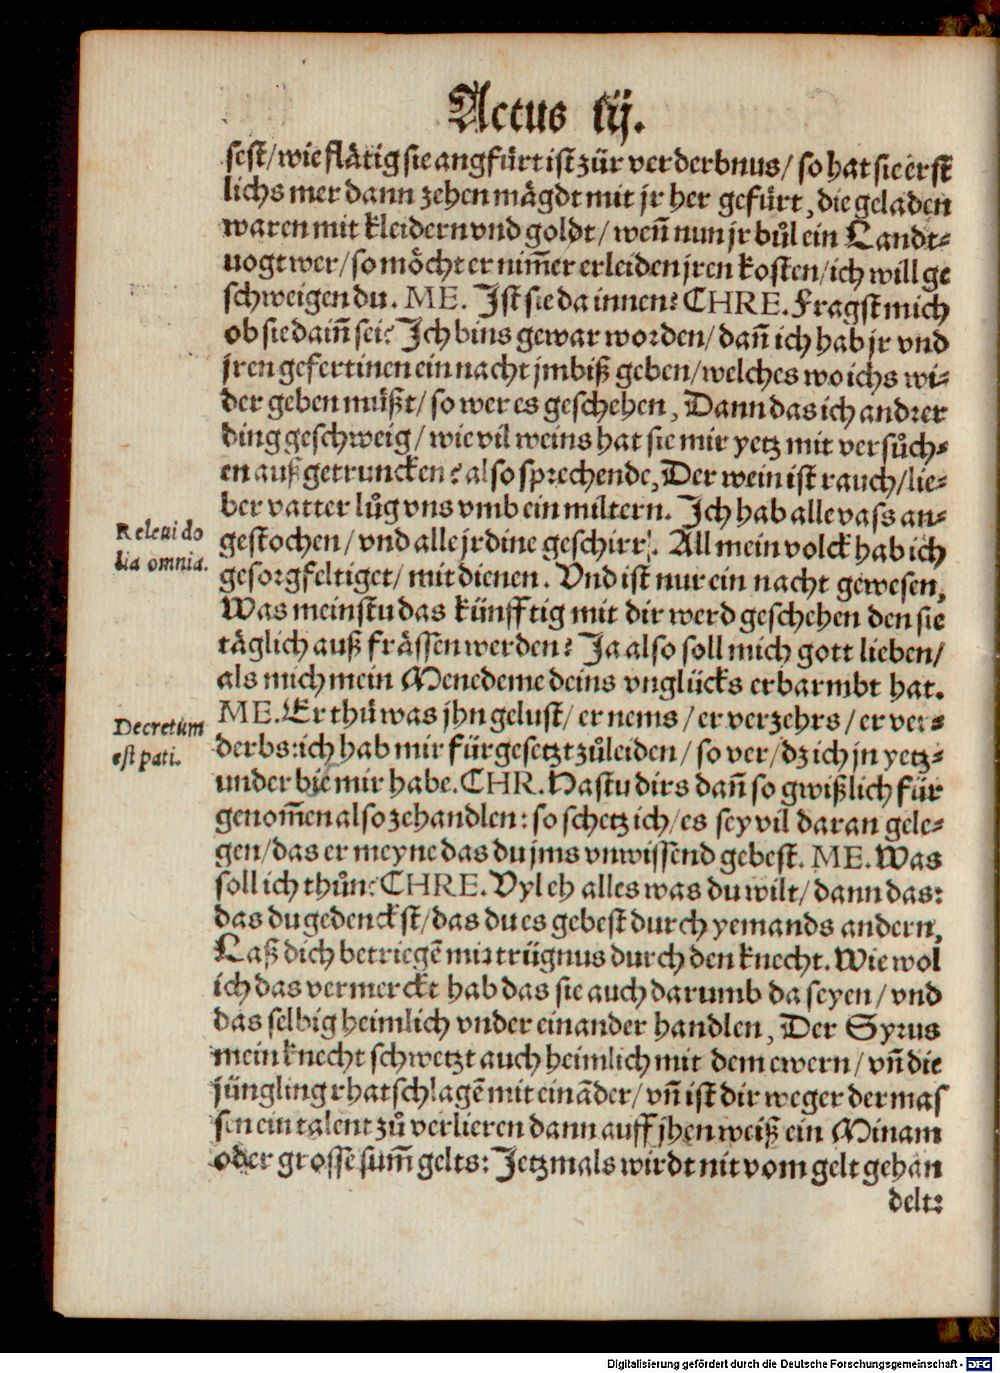 Actus iij.
sest/ wie flätig sie angfürt ist zür verderbnus/ so hat sie erst
lichs mer dann zehen mägdt mit jr her gefürt, die geladen
waren mit kleidern vnd goldt/ weñ nun jr bůl ein Landt-
uogt wer/ so möcht er nim̃er erleiden jren kosten/ ich will ge
schweigen du. ME. Jst sie da innen? CHRE. Fragst mich
ob sie daiñ sei? Jch bins gewar worden/ dañ ich hab jr vnd
jren gefertinen ein nacht jmbiß geben/ welches wo ichs wi-
der geben müßt/ so wer es geschehen, Dann das ich andrer
ding geschweig/ wie vil weins hat sie mir yetz mit versůch-
en außgetruncken? also sprechende, Der wein ist rauch/ lie-
ber vatter lůg vns vmb ein miltern. Jch hab alle vass an-
gestochen/ vnd alle jrdine geschirr. All mein volck hab ich
gesorgfeltiget/ mit dienen. Vnd ist nur ein nacht gewesen,
Was meinstu das künfftig mit dir werd geschehen den sie
täglich auß frässen werden? Ja also soll mich gott lieben/
als mich mein Menedeme deins vnglücks erbarmbt hat.
ME. Er thů was jhn gelust/ er nems/ er verzehrs/ er ver-
derbs: ich hab mir fürgesetzt zůleiden/ so ver/ dz ich jn yetz-
under bie mir habe. CHR. Hastu dirs dañ so gwißlich für
genom̃en also zehandlen: so schetz ich/ es sey vil daran gele-
gen/ das er meyne das du jms vnwissend gebest. ME. Was
soll ich thůn? CHRE. Vyl eh alles was du wilt/ dann das:
das du gedenckst/ das du es gebest durch yemands andern,
Laß dich betriegẽ mit trügnus durch den knecht. Wie wol
ich das vermerckt hab das sie auch darumb da seyen/ vnd
das selbig heimlich vnder einander handlen, Der Syrus
mein knecht schwetzt auch heimlich mit dem ewern/ vñ die
jüngling rhatschlagẽ mit einãder/ vñ ist dir weger der mas
sen ein talent zů verlieren dann auff jhen weiß ein Minam
oder grossẽ sum̃ gelts: Jetzmals wirdt nit vom gelt gehan
delt:
Releui do
lia omnia.
Decretum
est pati.
Digitalisierung gefördert durch die Deutsche Forschungsgemeinschaft - DFG